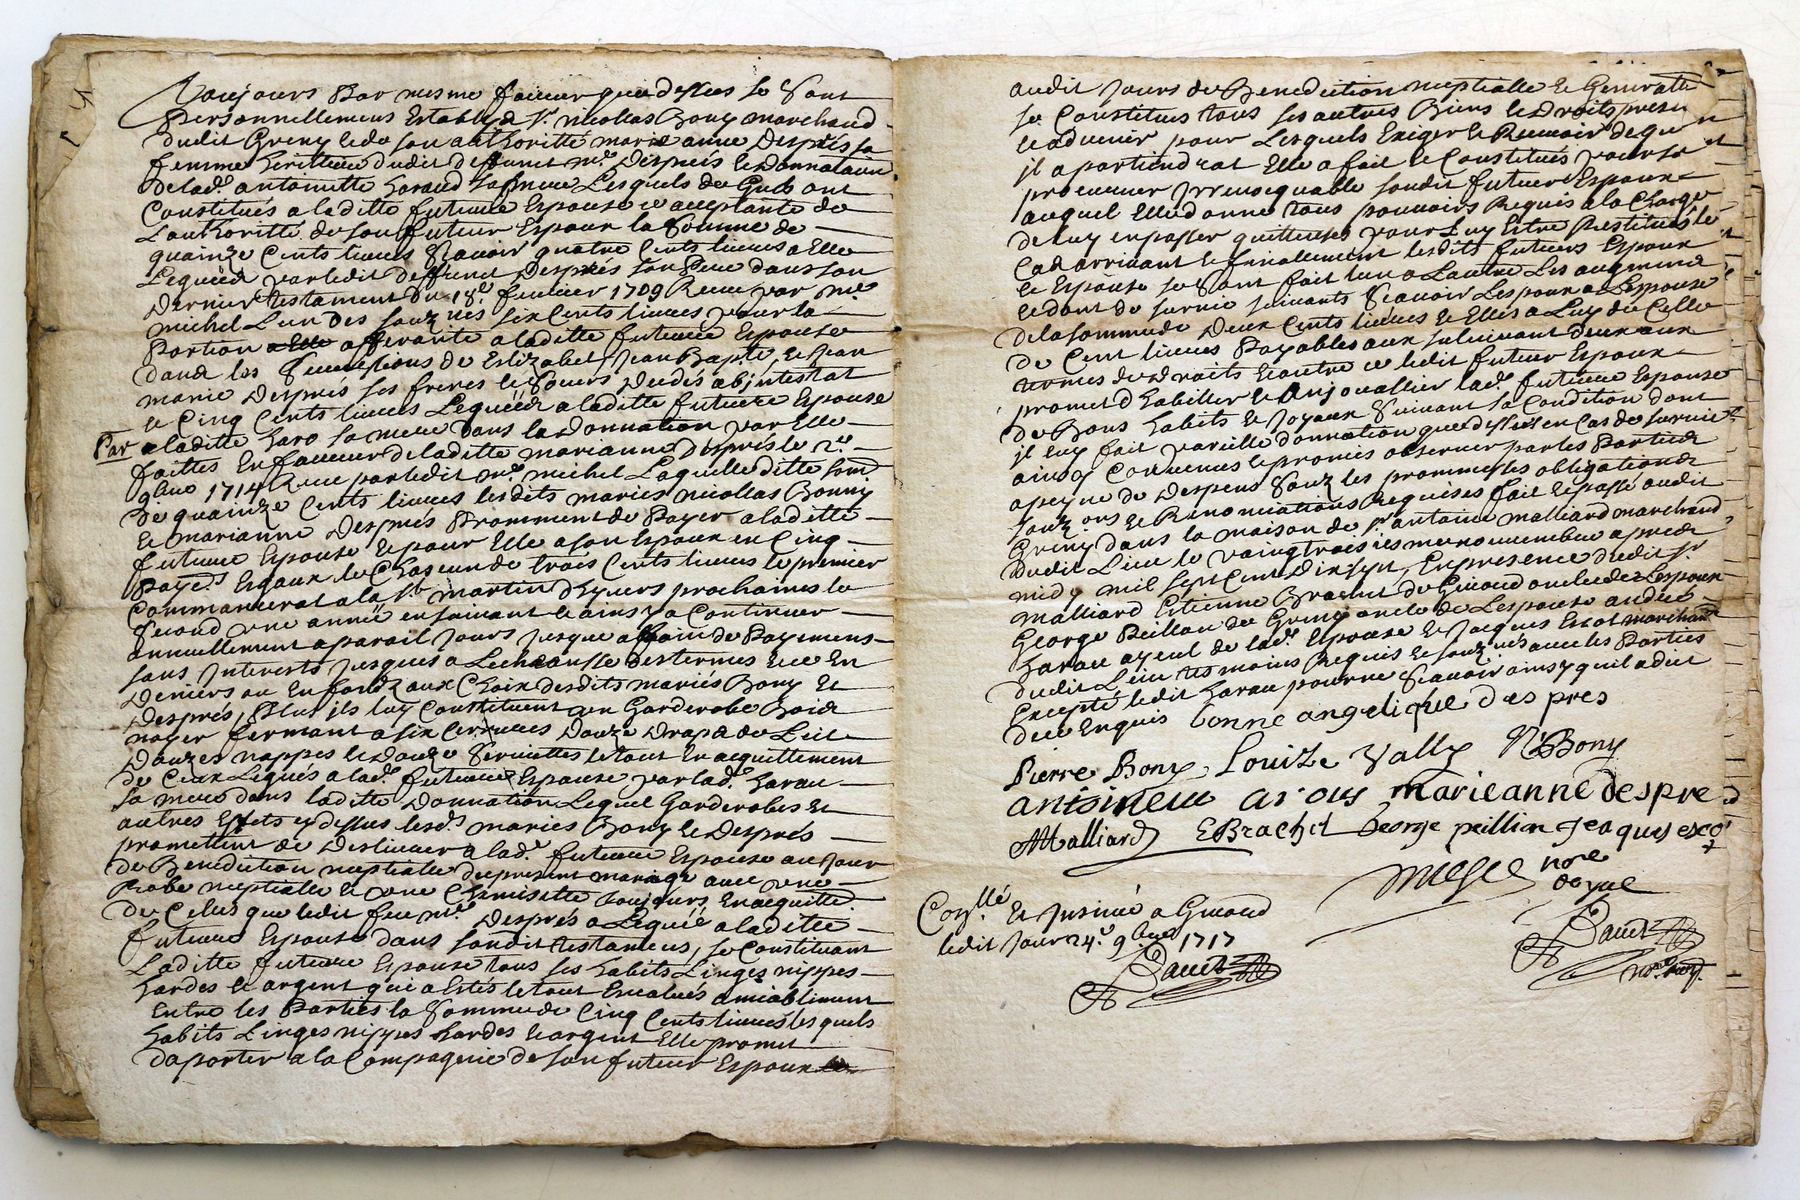 Toujours Par mesme faueur que dessus se sont
Personnellement Establys Sr. nicollas Bony marchand
dudit Greny et de son authoritté marie anne Desprès sa
femme herittiere dudit deffunt mre. Desprès et Donnataire
de lade. antoinette haraud sa mere Lesquels de Grés ont
Constitués a laditte future Espouse ce acceptante de
Lauthoritté de son futeur Espoux la Somme de
quainze Cents liures Scauoir quatre Cents liures a Elle
Leguéés par ledit deffunt Desprès son Pere dans son
Dernier testament du 18e. feurier 1709 Receu par me.
michel L'un des souz nés six Cents liures pour la
Portion afferante a laditte future Espouse
dans les Successions de Elizabet, Jean Bapte. et Jean
marie Desprès ses freres et Soeurs decedés abjntestat
et Cinq Cents liures Leguéés a laditte future Espouse
Par laditte haro sa mere dans la donnation par Elle
faittes En faueur de laditte marianne Desprès le 2e.
9bre 1714 Receue par ledit me. michel Laquelle ditte som̃e
de quainze Cents liures lesdits mariés nicollas Bonny
et marianne Desprès Promment de Payer a laditte
future Espouse et pour Elle a son Espoux en Cinq
Payets. Esgaux de Chascun de trois Cents liures le premier
Commancerat a la St. martin d'hyuers prochaines le
Second une année ensuiuant et ainsy a Continuer
annuellement a parail Jours Jusque a fain de Payemens
sans Interests Jusques a Lecheansse des termes et ce En
Deniers ou En fondz aux Choix desdits mariés Bony et
Desprès, Plus ils luy Constituent un Garderobe Bois
noyer fermant a six serrures Douze Draps de Lict
Douzes nappes et Douze Seruiettes le tout En acquittement
de Ceux Legués a lade. future Espouse par lade. harau
sa mere dans laditte Donnation Lequel Garderobes et
autres Effets cy dessus lesds. mariés Bony et Desprès
promettent de Desliurer a lade. future Espouse au Jour
de Benediction nuptialle du present mariage auec une
Robe nuptialle et une Chemisette toujours En acquitte.
de Celus que ledit feu mre. Desprès a Legué a laditte
future Espouse dans sondit testament, se Constituant
Laditte future Espouse tous ses habits Linges nippes
hardes et argent qui a Estés le tout Eualués amiablement
Entre les Parties la Somme de Cinq Cents liures les quels
habits Linges nippes hardes et argent Elle promet
daporter a la Compagnie de son futeur Espoux
audit Jours de Benediction nuptialle Et Generalle
se Constitues tous ses autres Biens et Droits presen
et aduenir pour Lesquels Exiger et Receuoir de qui
il apartiendrat Elle a fait et Constitués pour son
procureur Irreuocquable sondit futeur Espoux
auquel Elle donne tous pouuoirs Requis a la Charge
de luy en passer quittences pour Luy Estre Restitués le
Cas arriuant et finallement lesdits futeurs Espoux
et Espouse se sont fait lun a Lautre Les augment
et dont de suruie suiuants Scauoir Lespoux a Lespouse
de la somme de Deux Cents liures et Elles a Luy de Celle
de Cent liures Payables aux suruiuant Deux aux
termes de Droits Et outre ce ledit futeur Espoux
promet d'habiller et Anjouallier lade. future Espouse
de Bons habits et Joyaux Suiuant sa Condition dont
il luy fait pareille donnation que dessus en Cas de suruie
ainsy Conuenus et promis obseruer par les Parties
a peyne de Despens Souz les prommesses obligations
souz ons et Renonciations Requises fait et passé audit
Greny dans la maison de sr. antoine malliard marchand
dudit Lieu le vaingtroisiesme nouembre apres
midy mil sept Cent Dixsept, En presence dudit sr.
malliard Estienne Brachet de Giuord oncle de Lespoux
George Peillon de Greny oncle de Lespouse andré
harau ayeul de lade. Espouse et Jacques Escot marchand
dudit Lieu tesmoins Requis et souz nés auec les Parties
Excepté ledit harau pour ne Scauoir ainsy quil a dit
de ce Enquis bonne angelique des pres
Pierre Bony Louize Vally N: Bony
antoinette arous marie anne despres
AMalliard EBrachet George peillion Jeaques esco
michel nore
royal
Conllé Et Insinué a Giuord
ledit Jour 24e. 9bre 1717